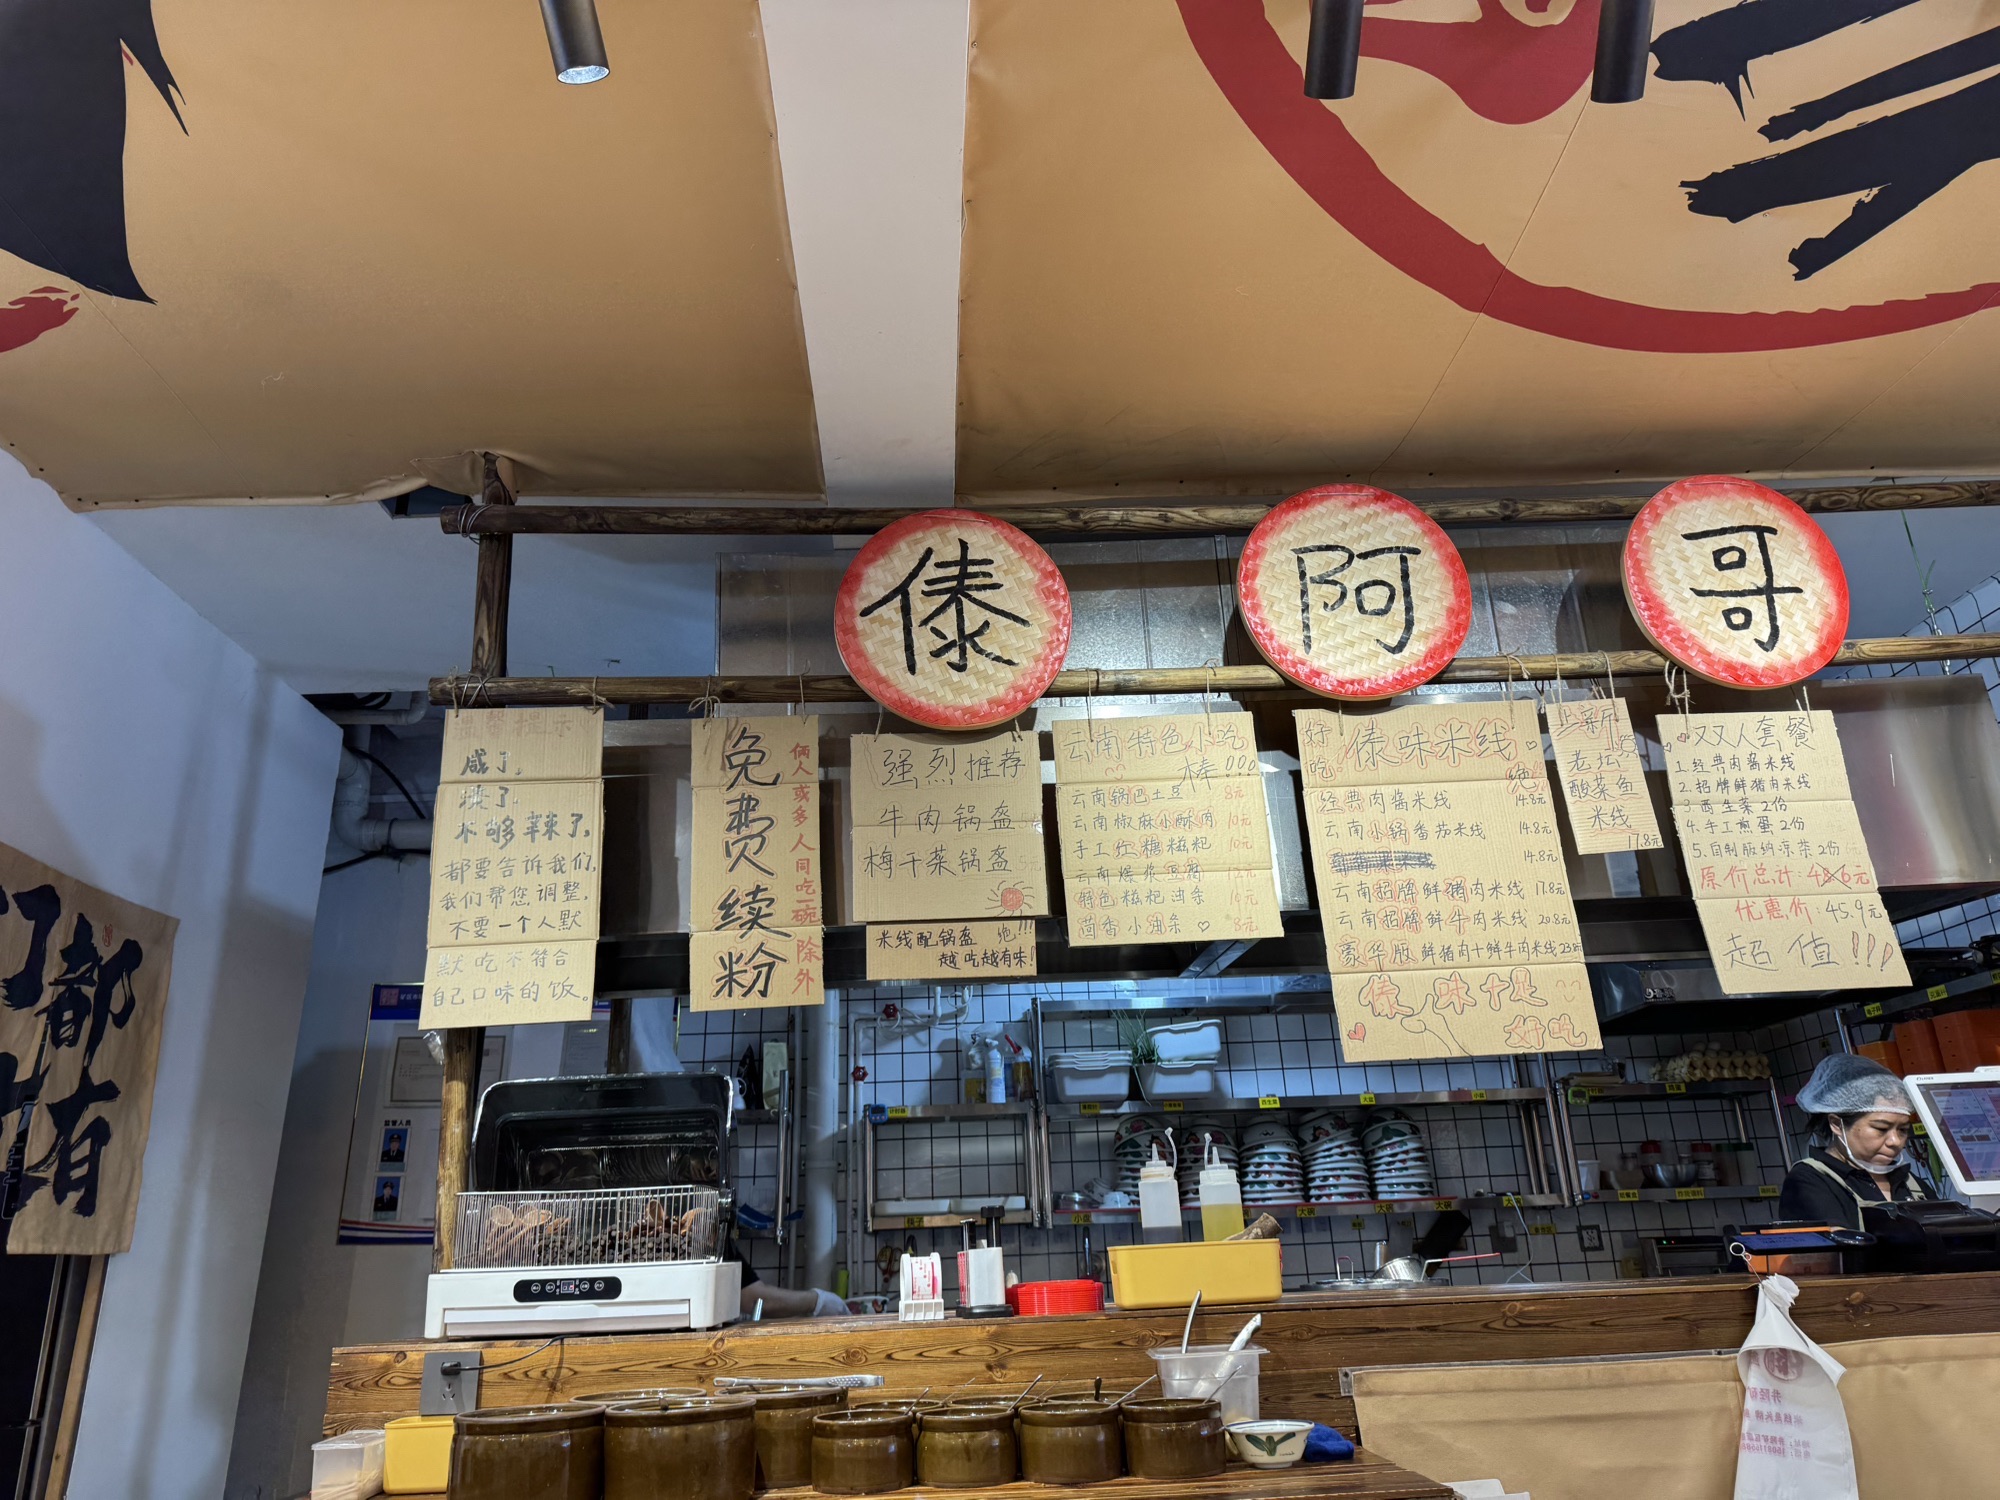 傣
阿
哥
温馨提示
咸了,
淡了,
不够辣了,
都要告诉我们,
我们帮您调整,
不要一个人默
默吃不符合
自己口味的饭。
免费续粉
俩人或多人同吃一碗除外
强烈推荐
牛肉锅盔
梅干菜锅盔
米线配锅盔 绝!!!
越吃越有味!
云南特色小吃
棒!!!
云南锅巴土豆 8元
云南椒麻小酥肉 10元
手工红糖糍粑 10元
云南爆浆豆腐 12元
特色糍粑油条
茴香小油条 8元
好吃
傣味米线
绝!!
经典肉酱米线 14.8元
云南小锅番茄米线 14.8元
14.8元
云南招牌鲜猪肉米线 17.8元
云南招牌鲜牛肉米线 20.8元
豪华版鲜猪肉+鲜牛肉米线 23.8元
傣味十足
好吃
上新
老坛
酸菜鱼
米线
17.8元
双人套餐
1.经典肉酱米线
2.招牌鲜猪肉米线
3.西生菜2份
4.手工煎蛋2份
5.自制版纳凉菜2份
原价总计:48.6元
优惠价:45.9元
超值!!!
都
有
监管人员
大碗
大碗
大碗
小碗
筷子